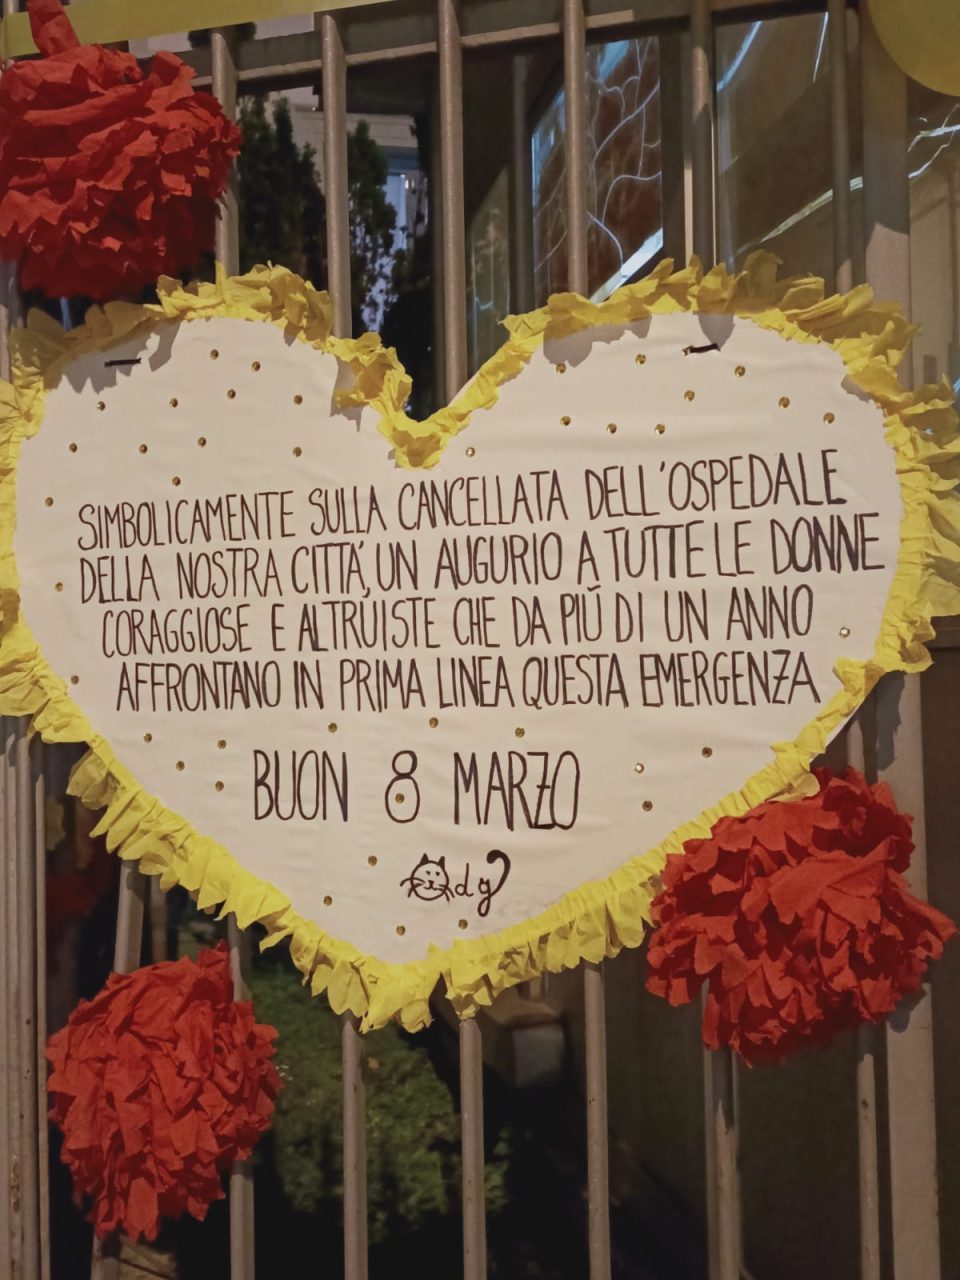 SIMBOLICAMENTE SULLA CANCELLATA DELL'OSPEDALE
DELLA NOSTRA CITTÁ, UN AUGURIO A TUTTE LE DONNE
CORAGGIOSE E ALTRUISTE CHE DA PIÚ DI UN ANNO
AFFRONTANO IN PRIMA LINEA QUESTA EMERGENZA
BUON 8 MARZO